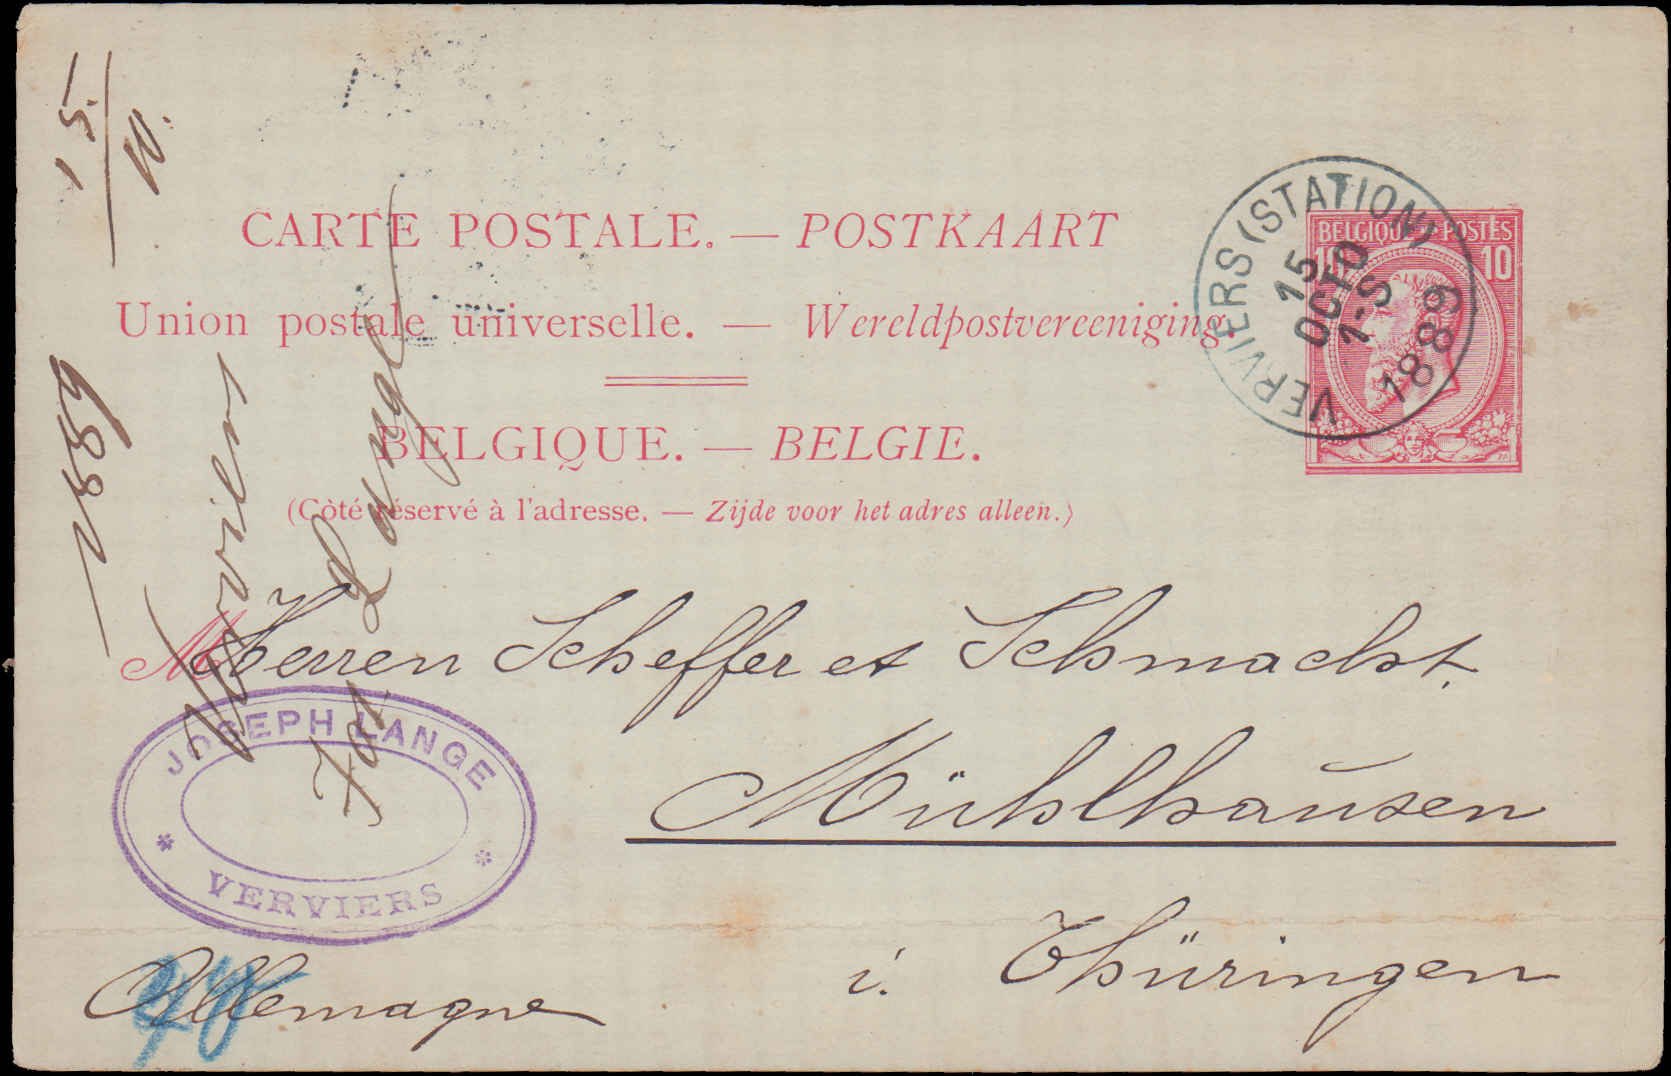 CARTE POSTALE. — POSTKAART
Union postale universelle. — Wereldpostvereeniging.
BELGIQUE. — BELGIE.
(Côté réservé à l'adresse. — Zijde voor het adres alleen.)
BELGIQUE POSTES
10 10
VERVIERS (STATION)
15
OCTO
1-S
1889
M Herren Scheffer et Schmacht.
Mühlhausen
i. Thüringen
Allemagne
JOSEPH LANGE
* VERVIERS *
15/10.
1889
Verviers
Jos. Lange